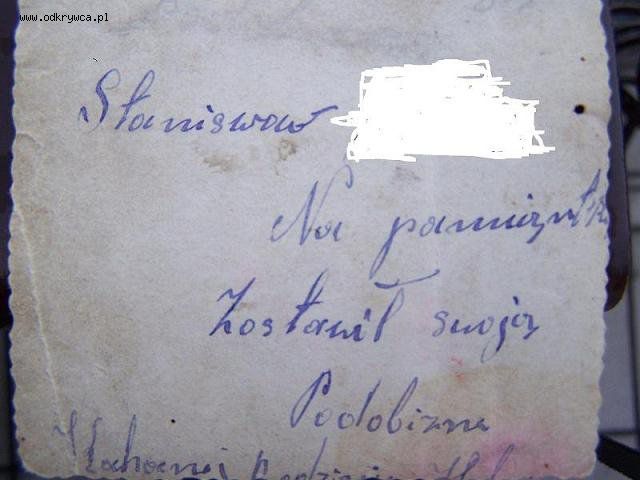 www.odkrywca.pl
Staniswaw
Na pamiątk
Zostawił swoją
Podobizne